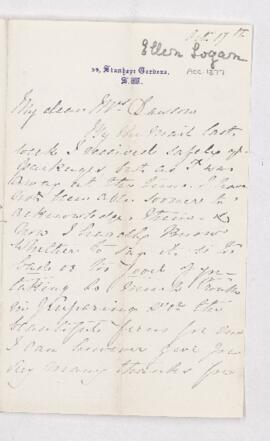 Oct 17th
Ellen Logan
ACC 1377
Stanhope Gardens.
S.W.
My dear Mrs Dawson
By the mail last
week I received safely
but as I was
away at the time I have
not been able sooner to
acknowledge them &
now I hardly know
whether to say it is too
good of you
taking so much trouble
in preparing for the
beautiful ferns for me
I can however give you
very many thanks for